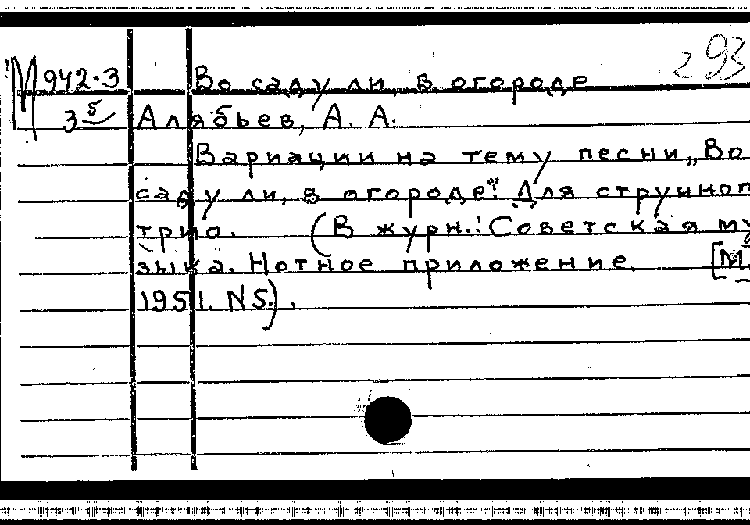 293
М 942-3 Во саду ли, в огороде
3 5 Алябьев, А. А.
Вариации на тему песни „Во
саду ли, в огороде". Для струнног
трио. (В журн.: Советская му
зыка. Нотное приложение. [М.
1951. N5.).